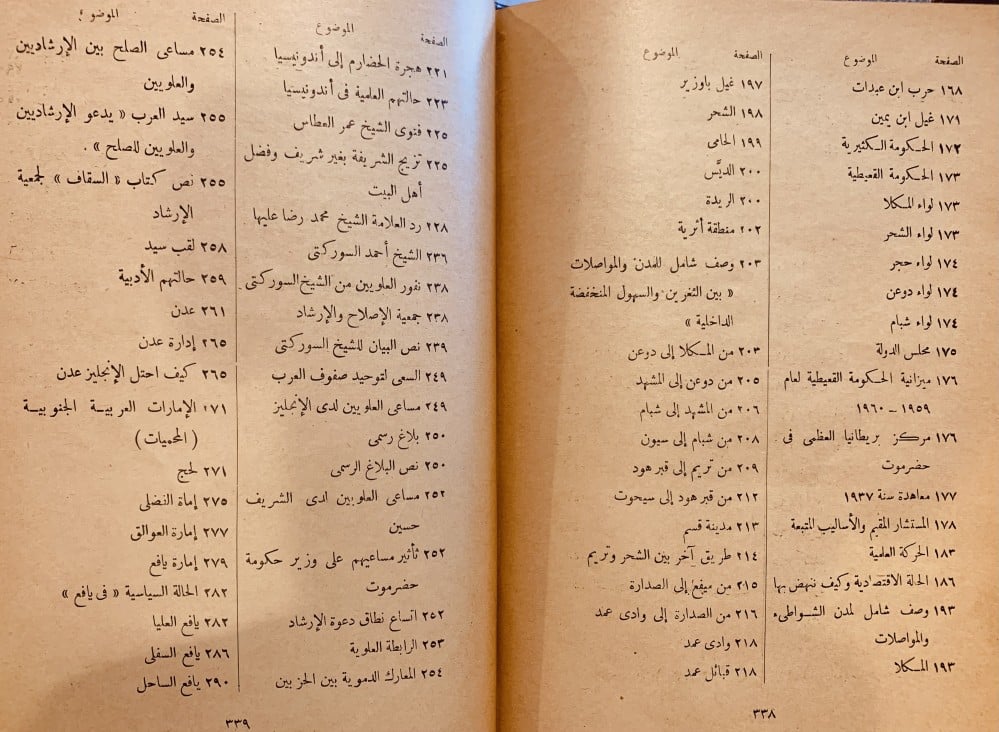 الصفحة الموضوع
١٦٨ حرب ابن عبدات
١٧١ غيل ابن يمين
١٧٢ الحكومة الكثيرية
١٧٣ الحكومة القعيطية
١٧٣ لواء المكلا
١٧٣ لواء الشحر
١٧٤ لواء حجر
١٧٤ لواء دوعن
١٧٤ لواء شبام
١٧٥ مجلس الدولة
١٧٦ ميزانية الحكومة القعيطية لعام
١٩٥٩ - ١٩٦٠
١٧٦ مركز بريطانيا العظمى فى
حضرموت
١٧٧ معاهدة سنة ١٩٣٧
١٧٨ المستشار المقيم والأساليب المتبعة
١٨٣ الحركة العلمية
١٨٦ الحالة الاقتصادية وكيف ننهض بها
١٩٣ وصف شامل لمدن الشواطىء
والمواصلات
١٩٣ المكلا
الصفحة الموضوع
١٩٧ غيل باوزير
١٩٨ الشحر
١٩٩ الحامى
٢٠٠ الديَّس
٢٠٠ الريدة
٢٠٢ منطقة أثرية
٢٠٣ وصف شامل للمدن والمواصلات
« بين الثغرين والسهول المنخفضة
الداخلية »
٢٠٣ من المكلا إلى دوعن
٢٠٥ من دوعن إلى المشهد
٢٠٦ من المشهد إلى شبام
٢٠٨ من شبام إلى سيون
٢٠٩ من تريم إلى قبر هود
٢١٢ من قبر هود إلى سيحوت
٢١٣ مدينة قسم
٢١٤ طريق آخر بين الشحر وتريم
٢١٥ من ميفع إلى الصدارة
٢١٦ من الصدارة إلى وادى عمد
٢١٨ وادى عمد
٢١٨ قبائل عمد
٣٣٨
الصفحة الموضوع
٢٢١ هجرة الحضارم إلى أندونيسيا
٢٢٣ حالتهم العلمية فى أندونيسيا
٢٢٥ فتوى الشيخ عمر العطاس
٢٢٥ تزيج الشريفة بغير شريف وفضل
أهل البيت
٢٢٨ رد العلامة الشيخ محمد رضا عليها
٢٣٦ الشيخ أحمد السوركتى
٢٣٨ نفور العلويين من الشيخ السوركتى
٢٣٨ جمعية الإصلاح والإرشاد
٢٣٩ نص البيان للشيخ السوركتى
٢٤٩ السعى لتوحيد صفوف العرب
٢٤٩ مساعى العلويين لدى الإنجليز
٢٥٠ بلاغ رسمى
٢٥٠ نص البلاغ الرسمى
٢٥٢ مساعى العلويين لدى الشريف
حسين
٢٥٢ تأثير مساعيهم على وزير حكومة
حضرموت
٢٥٢ اتساع نطاق دعوة الإرشاد
٢٥٣ الرابطة العلوية
٢٥٤ المعارك الدموية بين الحزبين
الصفحة الموضوع
٢٥٤ مساعى الصلح بين الإرشاديين
والعلويين
٢٥٥ سيد العرب « يدعو الإرشاديين
والعلويين للصلح » .
٢٥٥ نص كتاب « السقاف » لجمعية
الإرشاد
٢٥٨ لقب سيد
٢٥٩ حالتهم الأدبية
٢٦١ عدن
٢٦٥ إدارة عدن
٢٦٥ كيف احتل الإنجليز عدن
٢٧١ الإمارات العربية الجنوبية
( المحميات )
٢٧١ لحج
٢٧٥ إمارة الفضلى
٢٧٧ إمارة العوالق
٢٧٩ إمارة يافع
٢٨٢ الحالة السياسية « فى يافع »
٢٨٢ يافع العليا
٢٨٦ يافع السفلى
٢٩٠ يافع الساحل
٣٣٩